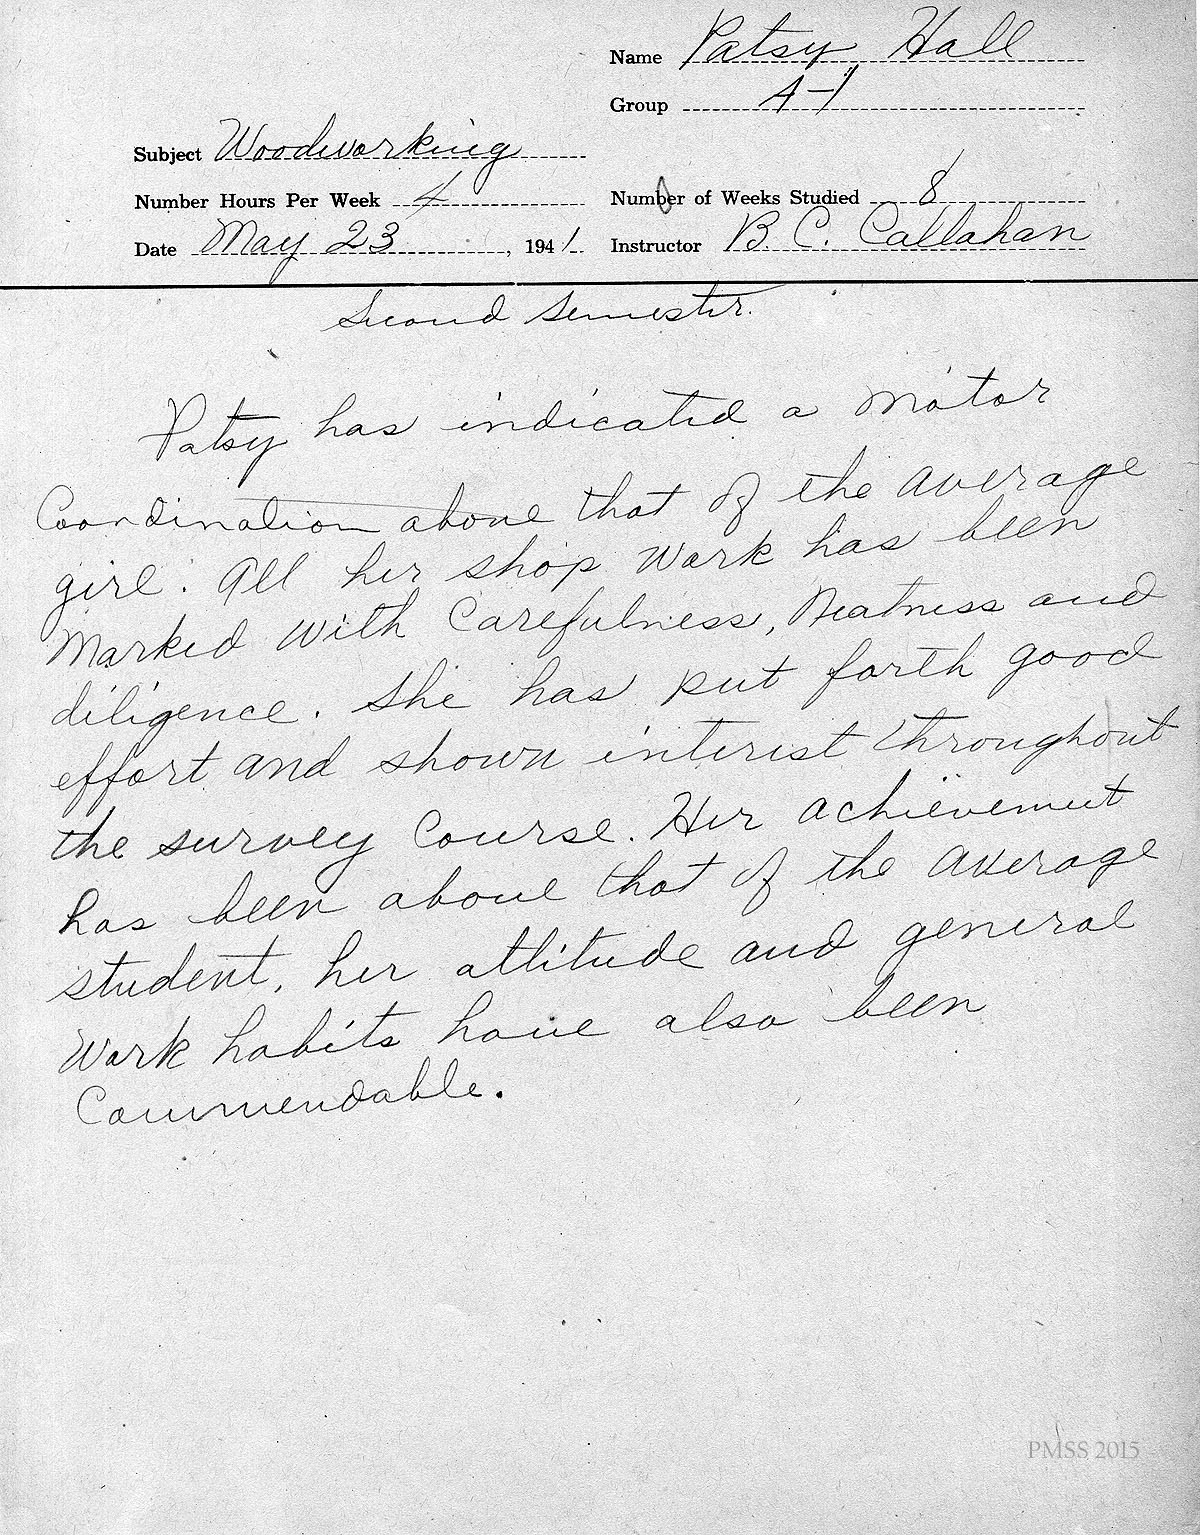 Name Patsy Hall
Group A-1
Subject Woodworking
Number Hours Per Week 4 Number of Weeks Studied 8
Date May 23, 1941 Instructor B. C. Callahan
Second Semester.
Patsy has indicated a motor
Coordination above that of the average
girl. All her shop work has been
Marked with Carefulness, Neatness and
diligence. She has put forth good
effort and shown interest throughout
the survey Course. Her achievement
has been above that of the average
student, her attitude and general
Work habits have also been
Commendable.
PMSS 2015